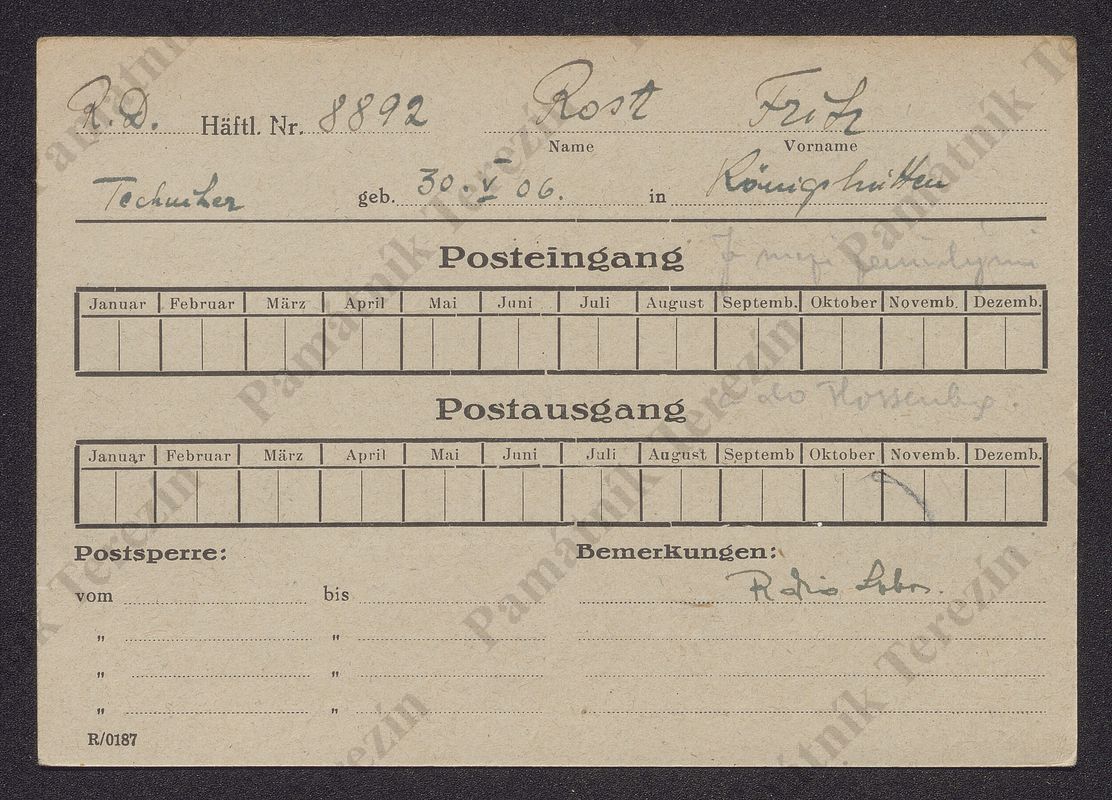 R.D. Häftl. Nr. 8892 Rost Fritz
Name Vorname
Techniker geb. 30. V 06. in Königshütten
Posteingang
Januar Februar März April Mai Juni Juli August Septemb. Oktober Novemb. Dezemb.
Postausgang
do Flossenbg.
Januar Februar März April Mai Juni Juli August Septemb Oktober Novemb. Dezemb.
Postsperre: Bemerkungen:
vom bis
" "
" "
" "
R/0187
Památník Terezín